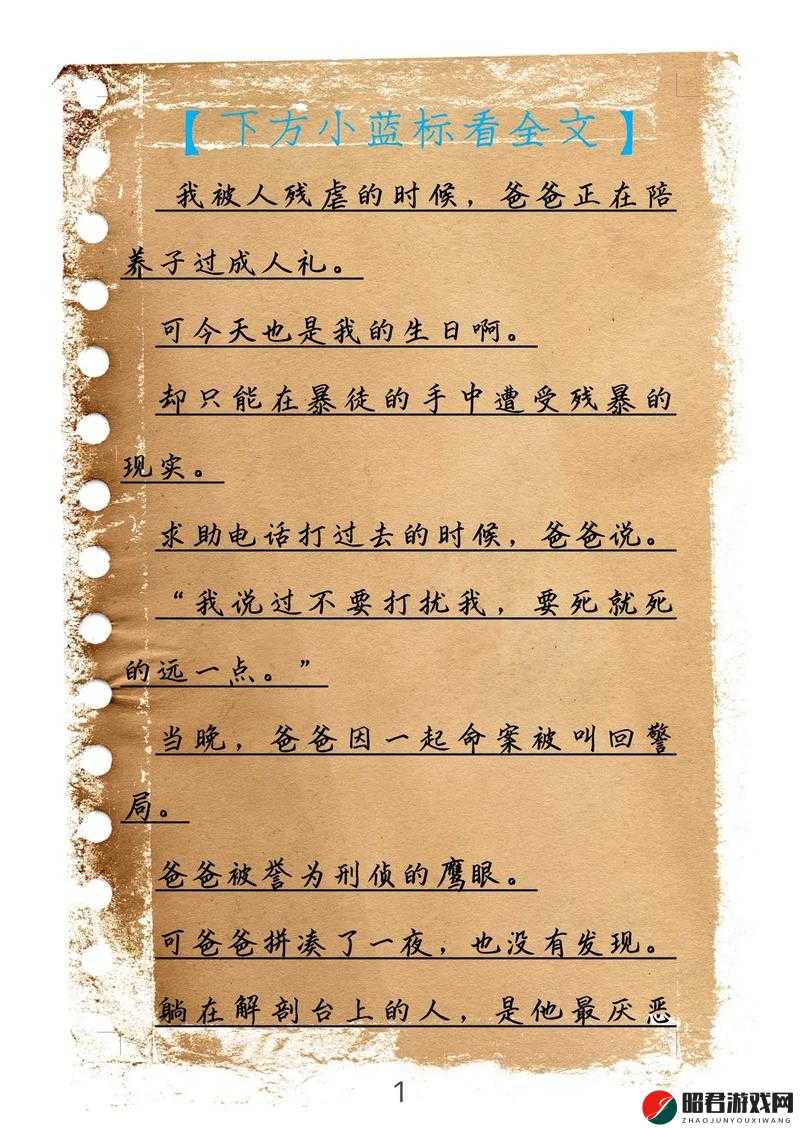 【下方小蓝标看全文】
我被人残虐的时候，爸爸正在陪
养子过成人礼。
可今天也是我的生日啊。
却只能在暴徒的手中遭受残暴的
现实。
求助电话打过去的时候，爸爸说。
“我说过不要打扰我，要死就死
的远一点。”
当晚，爸爸因一起命案被叫回警
局。
爸爸被誉为刑侦的鹰眼。
可爸爸拼凑了一夜，也没有发现。
躺在解剖台上的人，是他最厌恶
1
昭君游戏网
ZHAOJUNYOUXIWANG